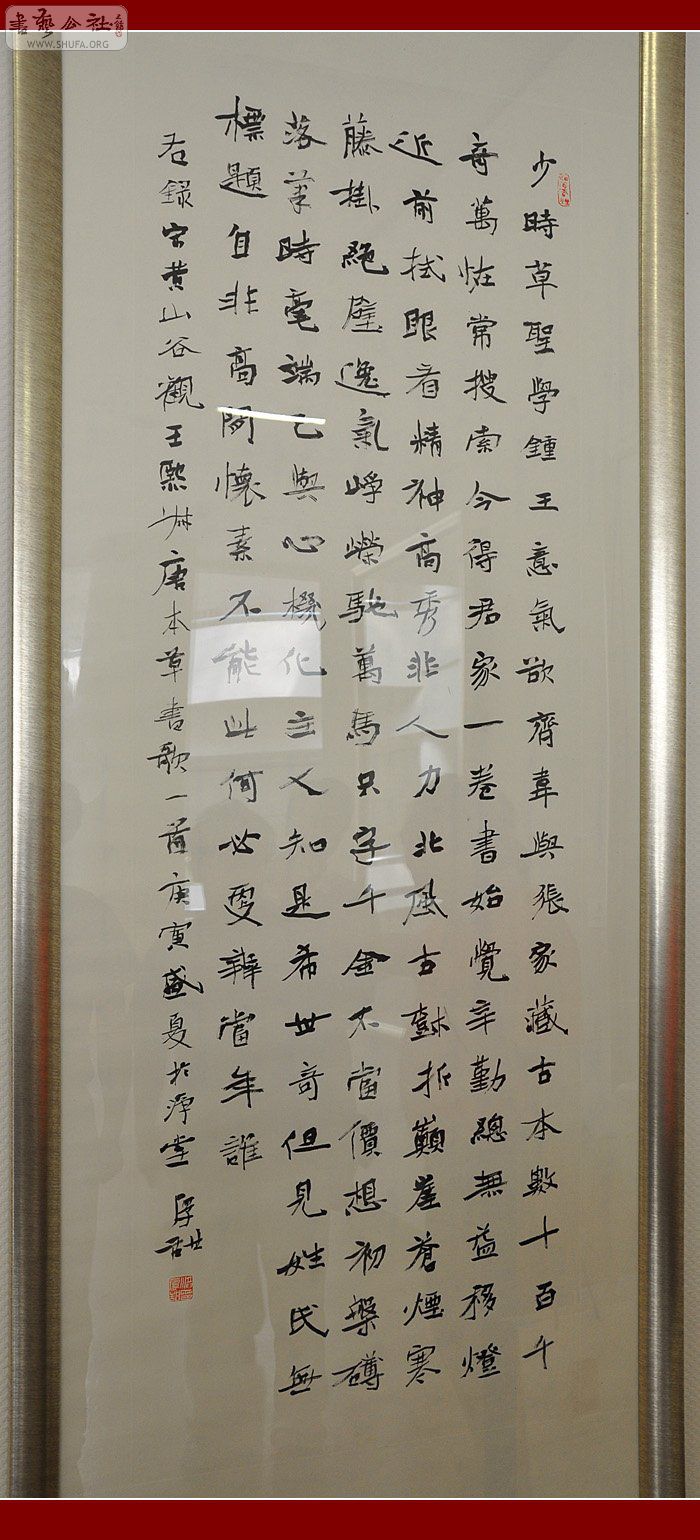 書藝公社
WWW.SHUFA.ORG
少時草聖學鍾王意氣欲齊韋與張家藏古本數十百千
奇萬恠常搜索今得君家一卷書始覺辛勤總無益移燈
近前拭眼看精神高秀非人力北風古樹折巔崖蒼煙寒
藤掛絕壁逸氣崢嶸馳萬馬只字千金不當價想初槃礴
落筆時毫端已與心機化主人知是希世奇但見姓氏無
標題自非高閑懷素不能此何必更辨當年誰
右録宋黃山谷觀王熙州唐本草書歌一首庚寅盛夏於淨堂